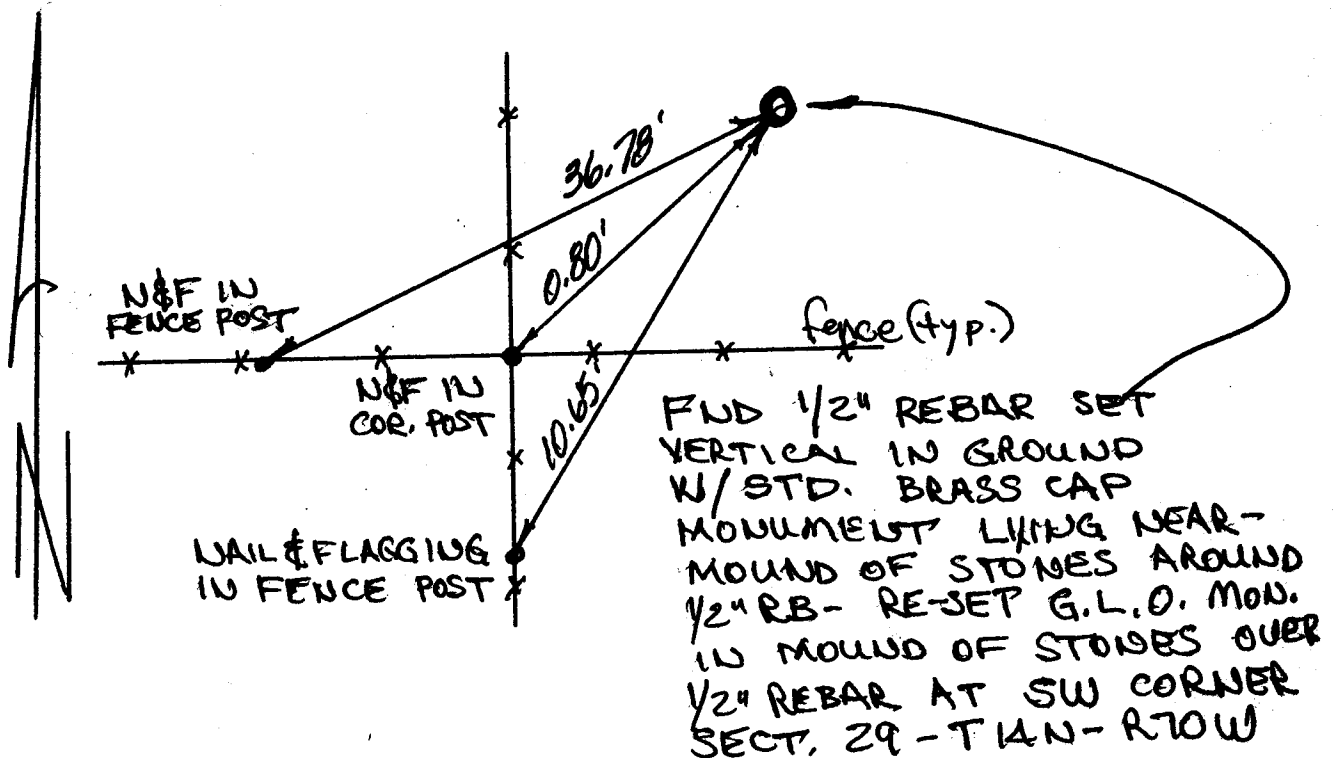 36.78'
0.80'
N&F IN
FENCE POST
fence (typ.)
N&F IN
COR. POST
10.65'
NAIL & FLAGGING
IN FENCE POST
FND 1/2" REBAR SET
VERTICAL IN GROUND
W/STD. BRASS CAP
MONUMENT LYING NEAR-
MOUND OF STONES AROUND
1/2" RB- RE-SET G.L.O. MON.
IN MOUND OF STONES OVER
1/2" REBAR AT SW CORNER
SECT. 29 - T14N - R70W
N